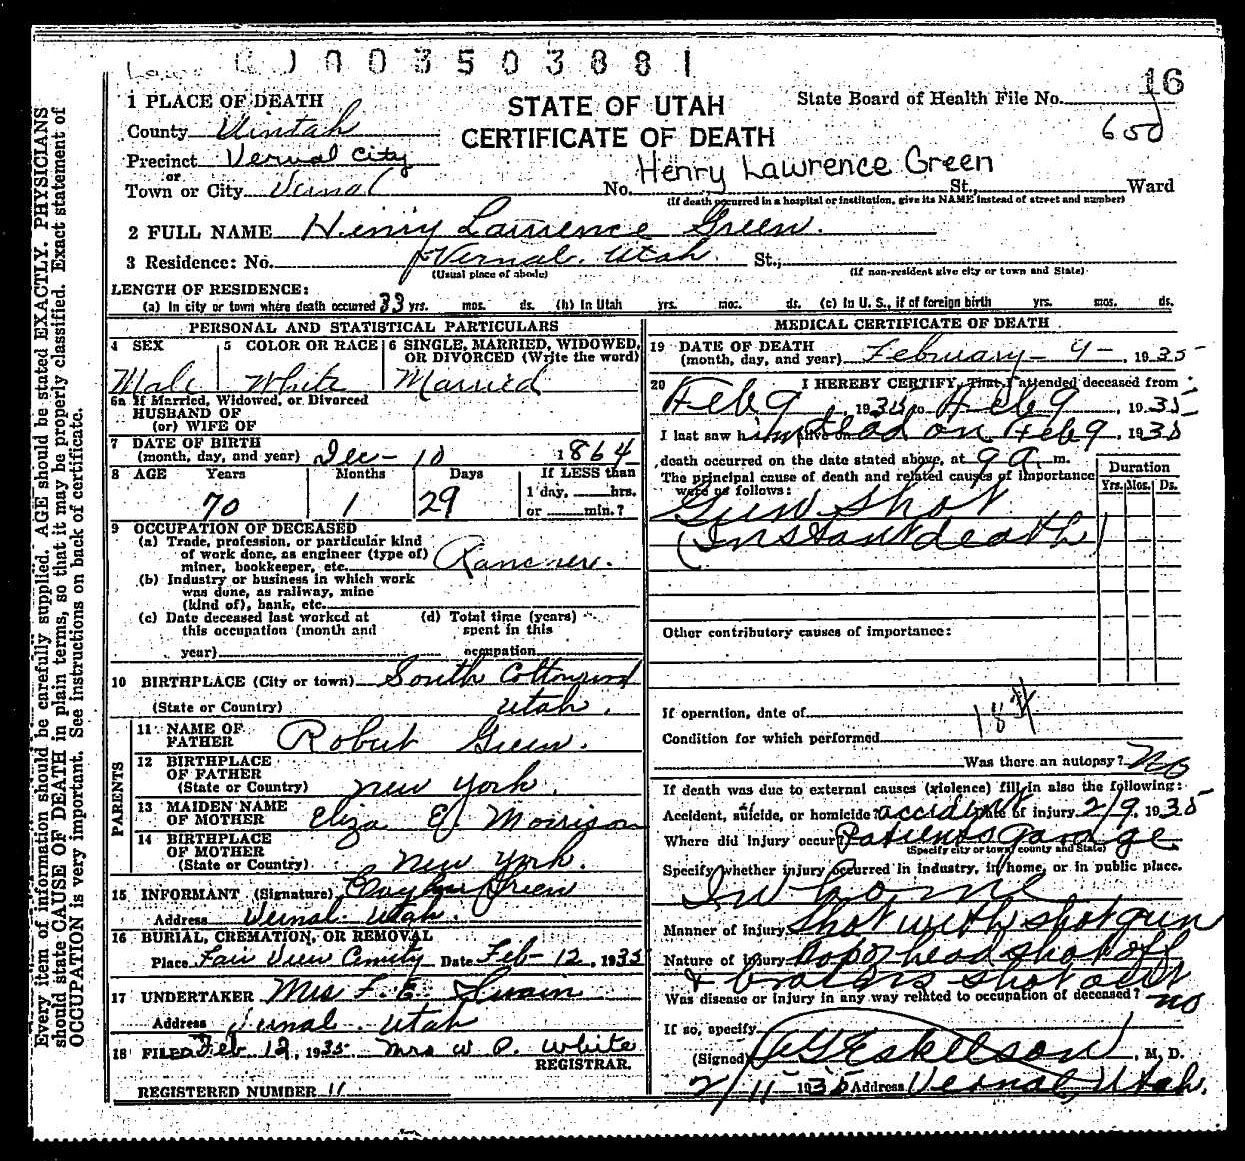 0003503881
16
1 PLACE OF DEATH
STATE OF UTAH
State Board of Health File No.
County Uintah
CERTIFICATE OF DEATH
650
Precinct Vernal City
or
Henry Lawrence Green
Town or City Vernal No. St., Ward
(If death occurred in a hospital or institution, give its NAME instead of street and number)
2 FULL NAME Henry Lawrence Green.
3 Residence: No. Vernal. Utah. St.,
(Usual place of abode) (If non-resident give city or town and State)
LENGTH OF RESIDENCE:
(a) In city or town where death occurred 33 yrs. mos. ds. (b) In Utah yrs. mos. ds. (c) In U. S., if of foreign birth yrs. mos. ds.
PERSONAL AND STATISTICAL PARTICULARS
4 SEX 5 COLOR OR RACE 6 SINGLE, MARRIED, WIDOWED, OR DIVORCED (Write the word)
Male White Married
6a If Married, Widowed, or Divorced
HUSBAND OF
(or) WIFE OF
7 DATE OF BIRTH
(month, day, and year) Dec- 10 1864
8 AGE Years Months Days If LESS than
70 1 29 1 day, hrs.
or min.?
9 OCCUPATION OF DECEASED
(a) Trade, profession, or particular kind
of work done, as engineer (type of)
miner, bookkeeper, etc. Rancher.
(b) Industry or business in which work
was done, as railway, mine
(kind of), bank, etc.
(c) Date deceased last worked at (d) Total time (years)
this occupation (month and spent in this
year) occupation
10 BIRTHPLACE (City or town) South Cottonwood
(State or Country) Utah.
PARENTS
11 NAME OF
FATHER Robert Green.
12 BIRTHPLACE
OF FATHER
(State or Country) New York.
13 MAIDEN NAME
OF MOTHER Eliza E Morrison
14 BIRTHPLACE
OF MOTHER
(State or Country) New York.
15 INFORMANT (Signature) Green
Address Vernal. Utah.
16 BURIAL, CREMATION, OR REMOVAL
Place Fair View Date Feb-12, 1935
17 UNDERTAKER Mrs F. E. Swain
Address Vernal. Utah
18 FILED Feb 12, 1935 Mrs W P. White
REGISTRAR.
REGISTERED NUMBER 11
MEDICAL CERTIFICATE OF DEATH
19 DATE OF DEATH
(month, day, and year) February- 9-, 1935
20 I HEREBY CERTIFY, That I attended deceased from
Feb 9, 1935 to Feb 9, 1935
I last saw him alive on dead on Feb 9, 1935
death occurred on the date stated above, at 9 a. m.
The principal cause of death and related causes of importance
were as follows:
Duration
Yrs. Mos. Ds.
Gun Shot
(Instant death)
Other contributory causes of importance:
If operation, date of
184
Condition for which performed
Was there an autopsy? No
If death was due to external causes (violence) fill in also the following:
Accident, suicide, or homicide? accident Date of injury 2/9, 1935
Where did injury occur? Patients Garage
(Specify city or town, county and State)
Specify whether injury occurred in industry, in home, or in public place.
In home
Manner of injury Shot with shotgun
Nature of injury top of head shot off
& brains shot out
Was disease or injury in any way related to occupation of deceased? no
If so, specify
(Signed) Eskelson, M. D.
2/11 1935 Address Vernal, Utah.
Every item of information should be carefully supplied. AGE should be stated EXACTLY. PHYSICIANS
should state CAUSE OF DEATH in plain terms, so that it may be properly classified. Exact statement of
OCCUPATION is very important. See instructions on back of certificate.